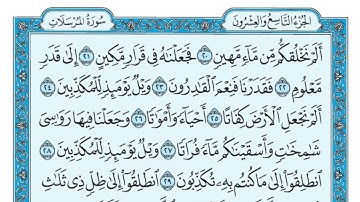 الجُزْءُ التَّاسِعُ وَالعِشْرُونَ
سُورَةُ المُرْسَلَات
أَلَمْ نَخْلُقكُّم مِّن مَّآءٍ مَّهِينٍ ٢٠ فَجَعَلْنَٰهُ فِي قَرَارٍ مَّكِينٍ ٢١ إِلَىٰ قَدَرٍ
مَّعْلُومٍ ٢٢ فَقَدَرْنَا فَنِعْمَ ٱلْقَٰدِرُونَ ٢٣ وَيْلٌ يَوْمَئِذٍ لِّلْمُكَذِّبِينَ ٢٤
أَلَمْ نَجْعَلِ ٱلْأَرْضَ كِفَاتًا ٢٥ أَحْيَآءً وَأَمْوَٰتًا ٢٦ وَجَعَلْنَا فِيهَا رَوَٰسِيَ
شَٰمِخَٰتٍ وَأَسْقَيْنَٰكُم مَّآءً فُرَاتًا ٢٧ وَيْلٌ يَوْمَئِذٍ لِّلْمُكَذِّبِينَ ٢٨
ٱنطَلِقُوٓا۟ إِلَىٰ مَا كُنتُم بِهِۦ تُكَذِّبُونَ ٢٩ ٱنطَلِقُوٓا۟ إِلَىٰ ظِلٍّ ذِي ثَلَٰثِ